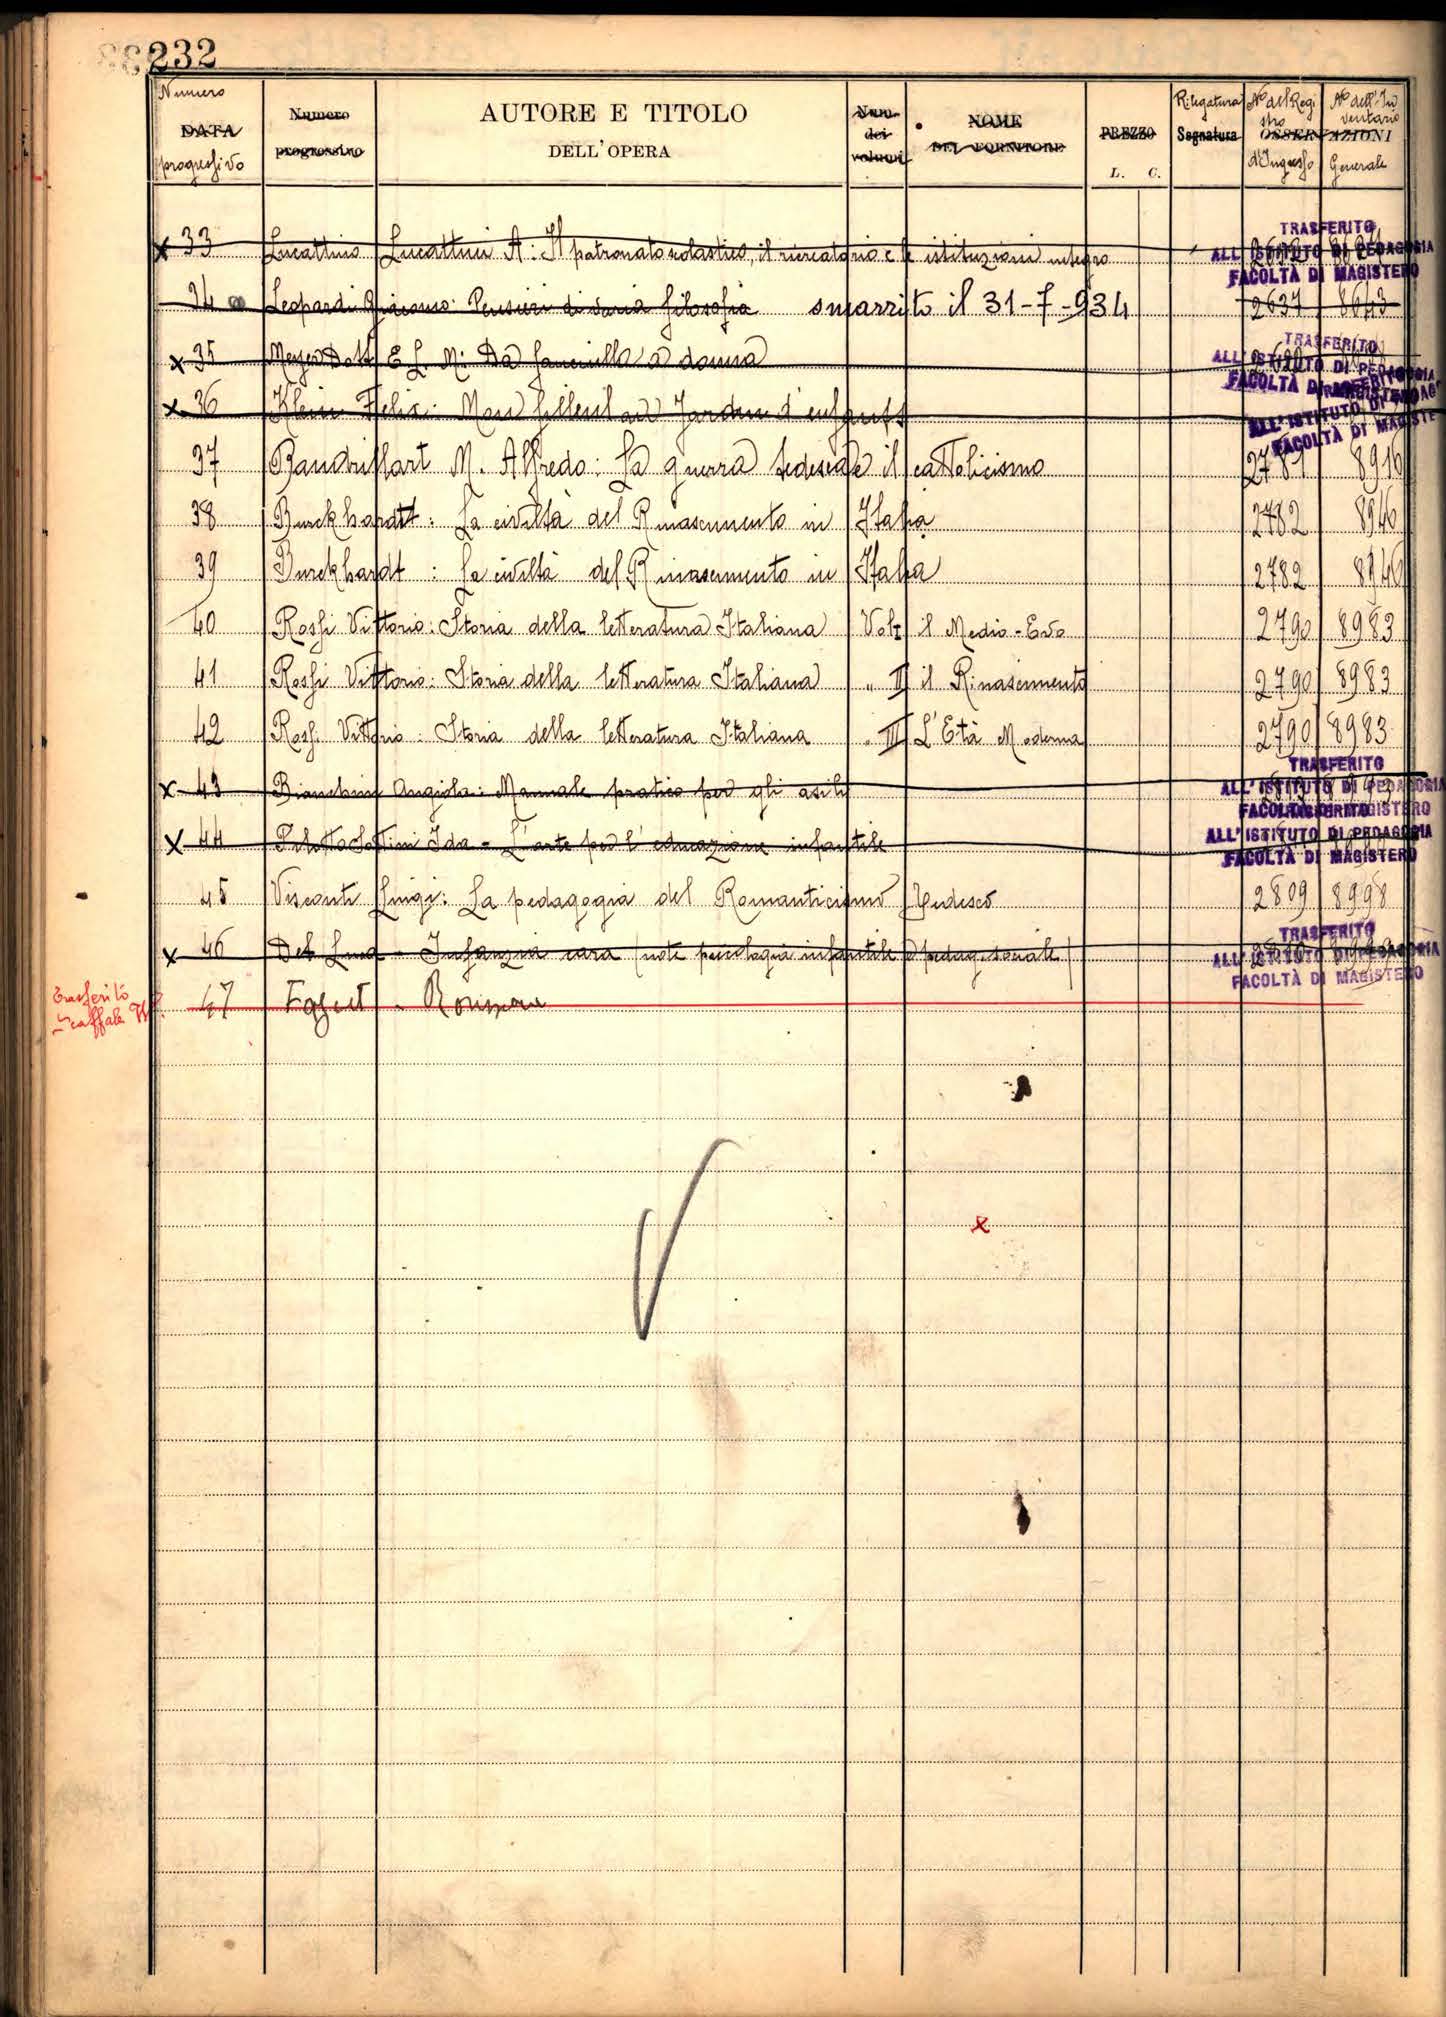 232
Numero
DATA
progressivo
Numero
progressivo
AUTORE E TITOLO
DELL'OPERA
Num.
dei
volumi
NOME
DEL FORNITORE
PREZZO
L. C.
Rilegatura
Segnatura
No del Regi
stro
d'Ingresso
OSSERVAZIONI
No dell'In
ventario
Generale
TRASFERITO
33 Lucattini A: Il patronato scolastico, il ricreatorio e le istituzioni integro
ALL'ISTITUTO DI PEDAGOGIA
FACOLTÀ DI MAGISTERO
34 Leopardi Giacomo: Pensieri di varia filosofia smarrito il 31-7-934 2637 8643
TRASFERITO
x 35 Meyer Dott E L. M: Da fanciulla a donna
ALL'ISTITUTO DI PEDAGOGIA
FACOLTÀ DI MAGISTERO
x 36 Klein Felix: Mon filleul au Jardin d'enfants
ALL'ISTITUTO DI PEDAGOGIA
FACOLTÀ DI MAGISTERO
37 Baudrillart M. Alfredo: La guerra tedesca e il cattolicismo 2781 8916
38 Burckhardt: La civiltà del Rinascimento in Italia 2782 8946
39 Burckhardt: La civiltà del Rinascimento in Italia 2782 8946
40 Rossi Vittorio: Storia della letteratura Italiana Vol I il Medio-Evo 2790 8983
41 Rossi Vittorio: Storia della letteratura Italiana " II il Rinascimento 2790 8983
42 Rossi Vittorio: Storia della letteratura Italiana " III L'Età Moderna 2790 8983
TRASFERITO
x 43 Bianchini Angiola: Manuale pratico per gli asili
ALL'ISTITUTO DI PEDAGOGIA
FACOLTÀ DI MAGISTERO
TRASFERITO
x 44 Ida - L'arte per l'educazione infantile
ALL'ISTITUTO DI PEDAGOGIA
FACOLTÀ DI MAGISTERO
45 Visconti Luigi: La pedagogia del Romanticismo Tedesco 2809 8998
TRASFERITO
x 46 Del Luca - Infanzia cara (note psicologia infantile e pedag. sociale)
ALL'ISTITUTO DI PEDAGOGIA
FACOLTÀ DI MAGISTERO
Trasferito
scaffale
47 Faguet - Rousseau
x